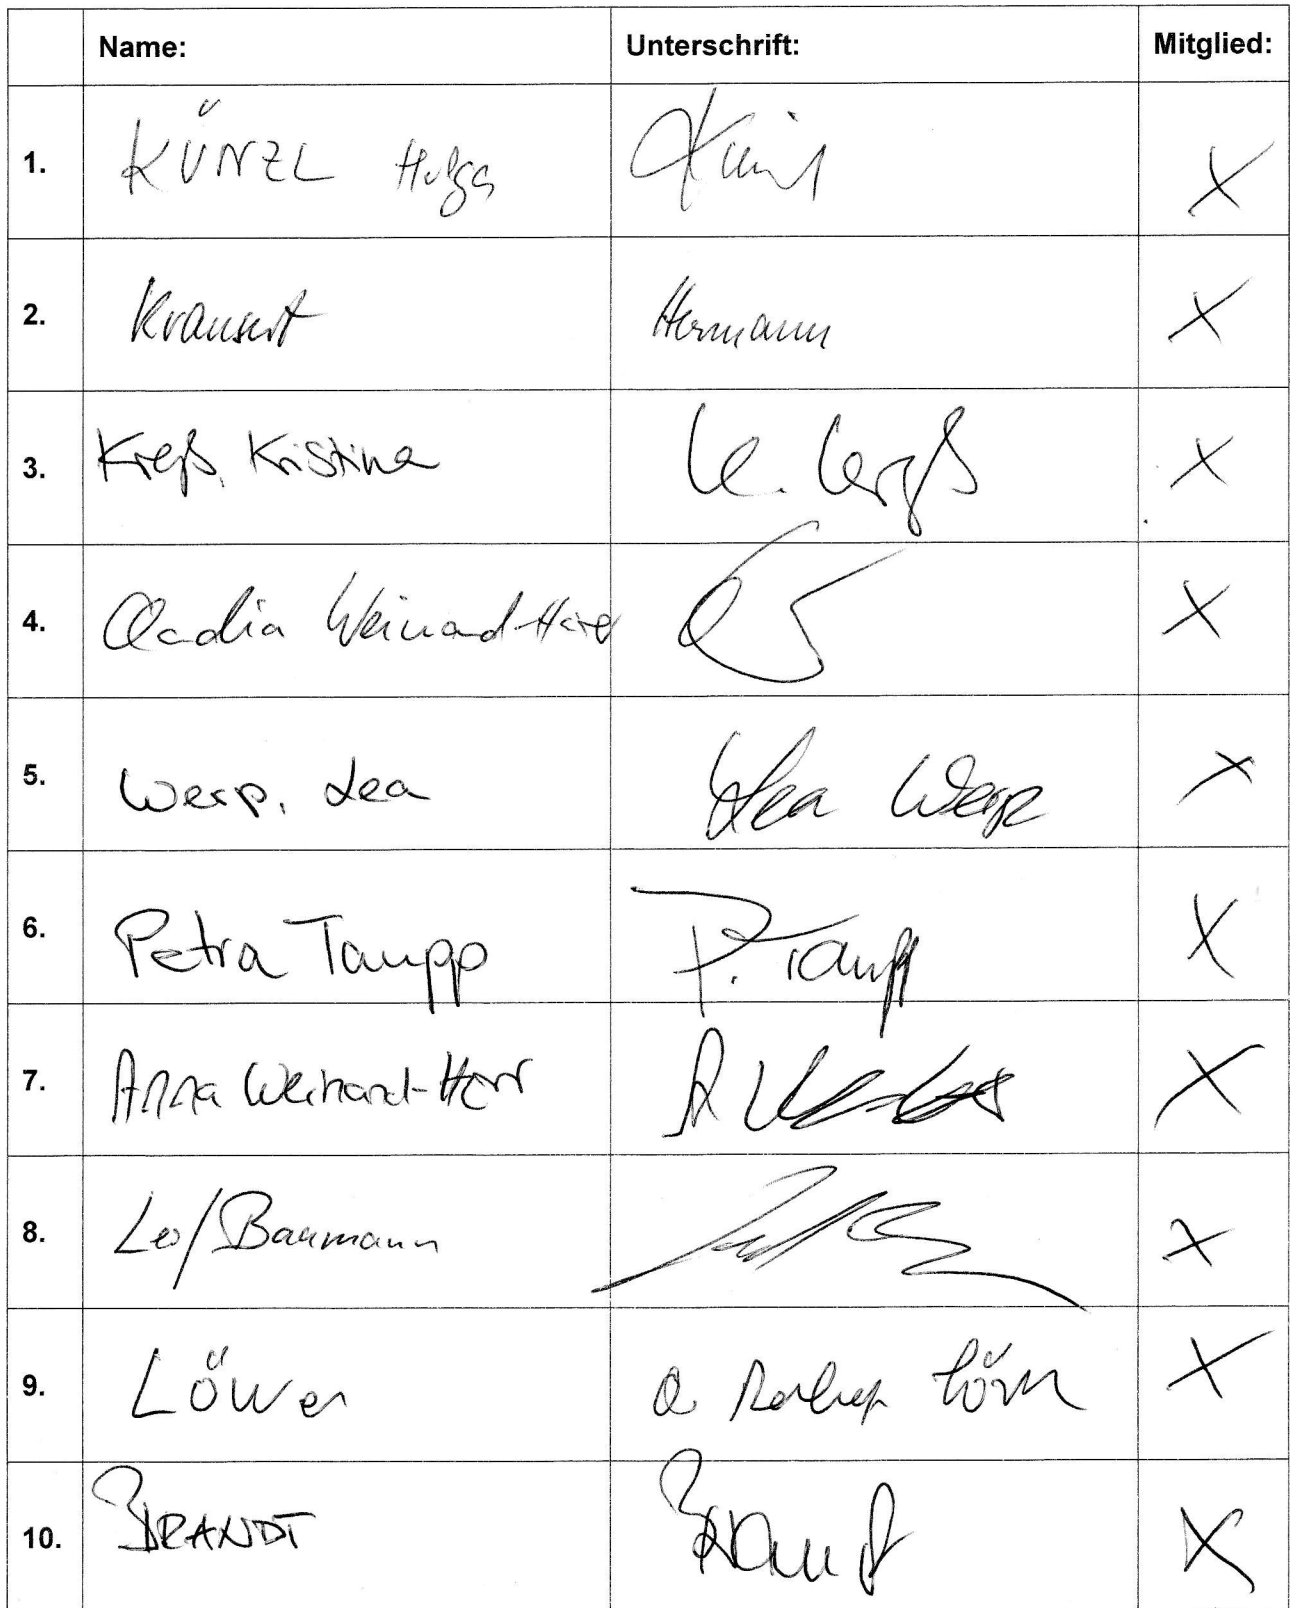 Name: Unterschrift: Mitglied:
1. KÜNZL Helga X
2. Krausert Hermann X
3. Kreß, Kristina K. Kreß X
4. Claudia Weinand-Härer X
5. Werp, Lea Lea Werp X
6. Petra Taupp P. Taupp X
7. Anna Weinand-Horr X
8. Leo/Baumann X
9. Löwer X
10. BRANDT Brandt X